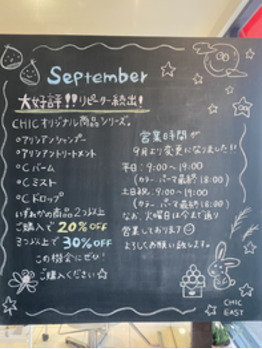 September
大好評!!リピーター続出!
CHICオリジナル商品シリーズ。
°アリシアンシャンプー
°アリシアントリートメント
°Cバーム
°Cミスト
°Cドロップ
いずれかの商品2つ以上
ご購入で20%OFF
3つ以上で30%OFF
この機会にぜひ
ご購入ください☆
営業時間が
9月より変更になりました!!
平日:9:00~19:00
(カラー、パーマ最終18:00)
土日祝:9:00~19:00
(カラー、パーマ最終18:00)
なお、火曜日は今まで通り
営業しております
よろしくお願い致します。
CHIC
EASY